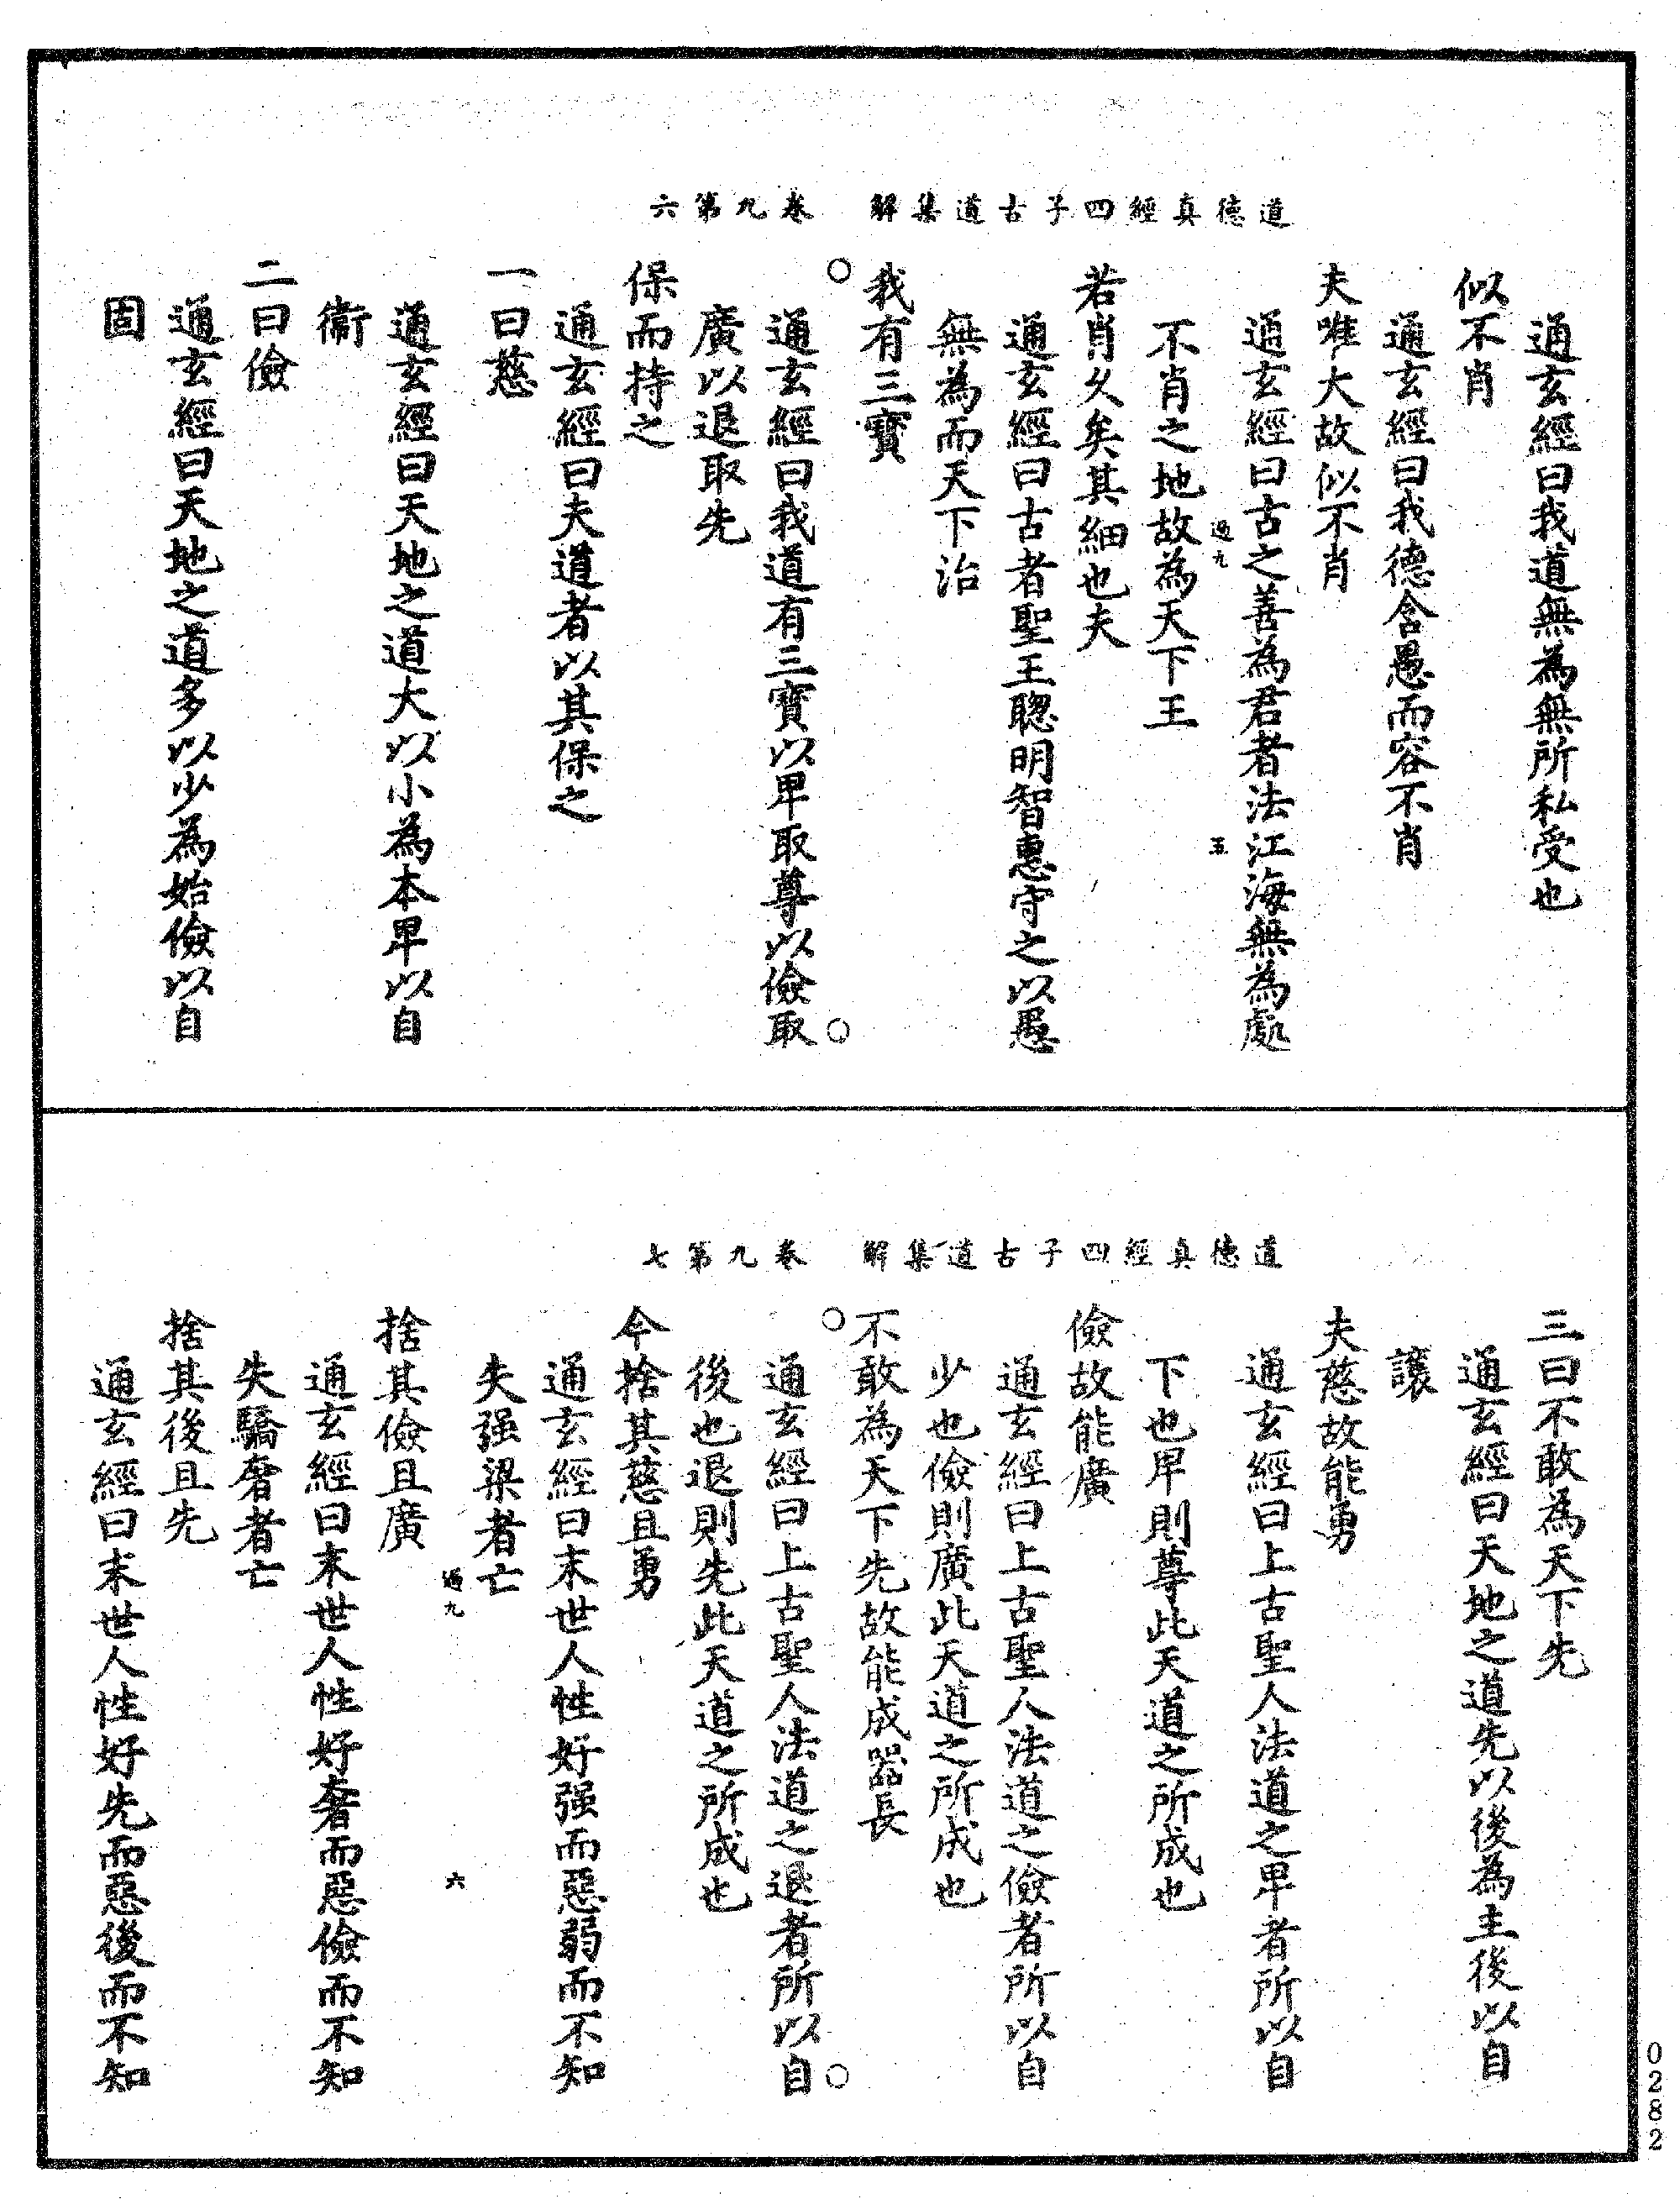 道德真經四子古道集解　卷九第六
通玄經曰我道無為無所私受也
似不肖
通玄經曰我德含愚而容不肖
夫唯大故似不肖
通玄經曰古之善為君者法江海無為處
過九　五
不肖之地故為天下王
若肖久矣其細也夫
通玄經曰古者聖王聰明智惠守之以愚
無為而天下治
我有三寶
通玄經曰我道有三寶以卑取尊以儉取
廣以退取先
保而持之
通玄經曰夫道者以其保之
一曰慈
通玄經曰天地之道大以小為本卑以自
衞
二曰儉
通玄經曰天地之道多以少為始儉以自
固
道德真經四子古道集解　卷九第七
三曰不敢為天下先
通玄經曰天地之道先以後為主後以自
讓
夫慈故能勇
通玄經曰上古聖人法道之卑者所以自
下也卑則尊此天道之所成也
儉故能廣
通玄經曰上古聖人法道之儉者所以自
少也儉則廣此天道之所成也
不敢為天下先故能成器長
通玄經曰上古聖人法道之退者所以自
後也退則先此天道之所成也
今捨其慈且勇
通玄經曰末世人性好强而惡弱而不知
失强梁者亡
過九　六
捨其儉且廣
通玄經曰末世人性好奢而惡儉而不知
失驕奢者亡
捨其後且先
通玄經曰末世人性好先而惡後而不知
0282